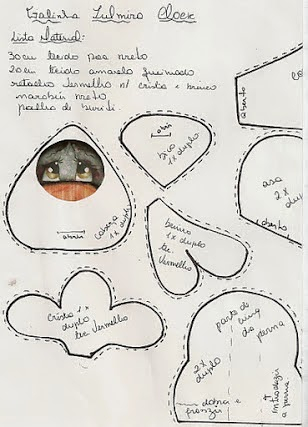 Galinha Zulmira Clock
Lista Material:
30cm tecido poa preto
20cm tecido amarelo queimado
retalho vermelho p/ crista e brinco
marabu preto
palha de buriti.
abrir
bico
1x duplo
aberto
asa
2x
duplo
aberto
abrir
cabeça
1x duplo
brinco
1x duplo
tec
Vermelho
crista 1x
duplo
tec Vermelho
parte de cima
da perna
2x
duplo
dobra e
franzir
introduzir
a perna